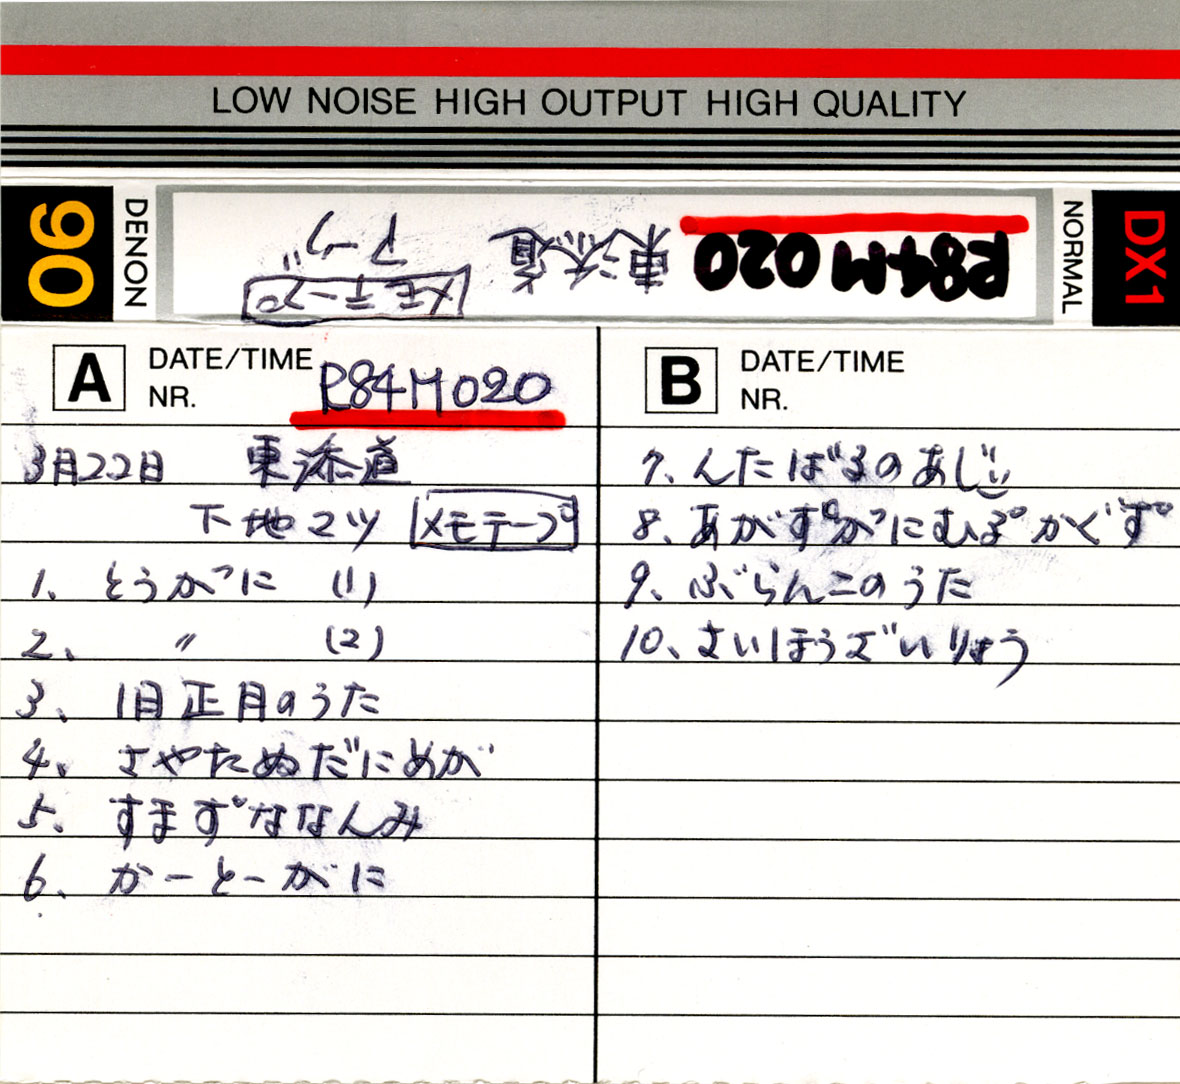 LOW NOISE HIGH OUTPUT HIGH QUALITY
90
DENON
R84M020
東添道
メモテープ
NORMAL
DX1
A DATE/TIME
NR.
R84M020
3月22日 東添道
下地マツ メモテープ
1. とうがに (1)
2、 〃 (2)
3、 1日正月のうた
4、 さやたぬだにめが
5、 すまずななんみ
6、 かーとーがに
B DATE/TIME
NR.
7、んたばるのあじ
8、あがず゜がにむぷかぐず゜
9、ぶらんこのうた
10、さいほうざいりょう